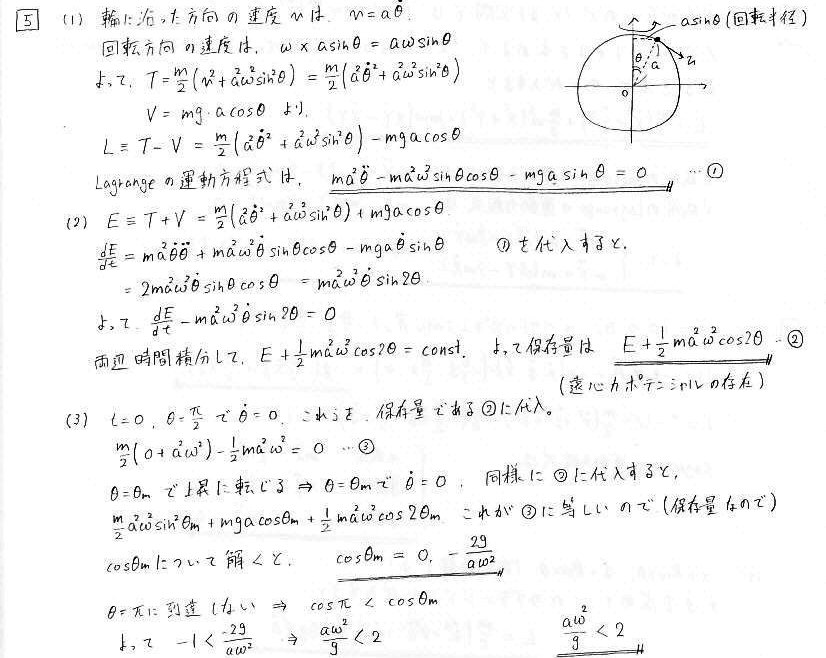 5 (1) 輪に沿った方向の速度vは、v=aθ̇.
asinθ (回転半径)
回転方向の速度は、ω×asinθ = aωsinθ
よって、T=m/2(v²+a²ω²sin²θ) = m/2(a²θ̇²+a²ω²sin²θ)
V = mg·acosθ より、
L ≡ T-V = m/2(a²θ̇²+a²ω²sin²θ)-mgacosθ
Lagrangeの運動方程式は、 ma²θ̈-ma²ω²sinθcosθ-mga sinθ = 0 …①
θ a v o
(2) E≡T+V = m/2(a²θ̇²+a²ω²sin²θ)+mgacosθ.
dE/dt = ma²θ̇θ̈+ma²ω²θ̇sinθcosθ-mgaθ̇sinθ ①を代入すると、
= 2ma²ω²θ̇sinθcosθ = ma²ω²θ̇sin2θ.
よって、dE/dt-ma²ω²θ̇sin2θ = 0
両辺時間積分して、E+1/2ma²ω²cos2θ = const. よって保存量は E+1/2ma²ω²cos2θ …②
(遠心力ポテンシャルの存在)
(3) t=0, θ=π/2 で θ̇=0, これらを、保存量である②に代入。
m/2(0+a²ω²)-1/2ma²ω² = 0 …③
θ=θm で上昇に転じる ⇒ θ=θmで θ̇=0, 同様に②に代入すると、
m/2a²ω²sin²θm+mgacosθm+1/2ma²ω²cos2θm これが③に等しいので(保存量なので)
cosθmについて解くと、 cosθm = 0, -2g/aω²
θ=πに到達しない ⇒ cosπ < cosθm
よって -1<-2g/aω² ⇒ aω²/g<2 aω²/g<2